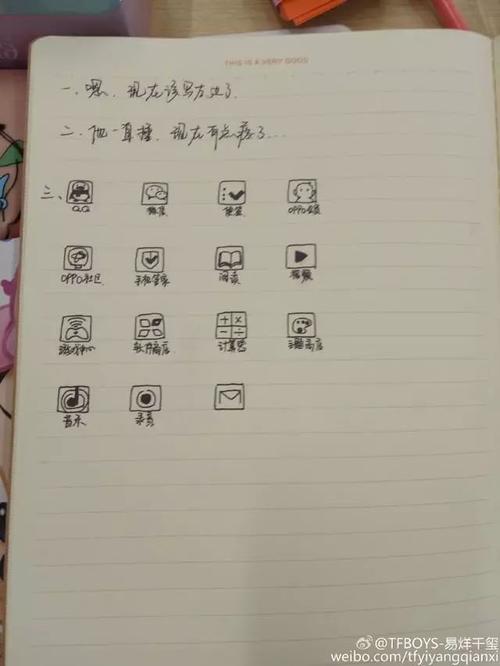 THIS IS A VERY GOOD
一、嗯、现在该写左边了.
二、他一直睡,现在有点疼了...
三、
QQ 微信 便签 OPPO
OPPO社区 手机管家 阅读 视频
游戏中心 软件商店 计算器 主题商店
音乐 录音
@TFBOYS-易烊千玺
weibo.com/tfyiyangqianxi